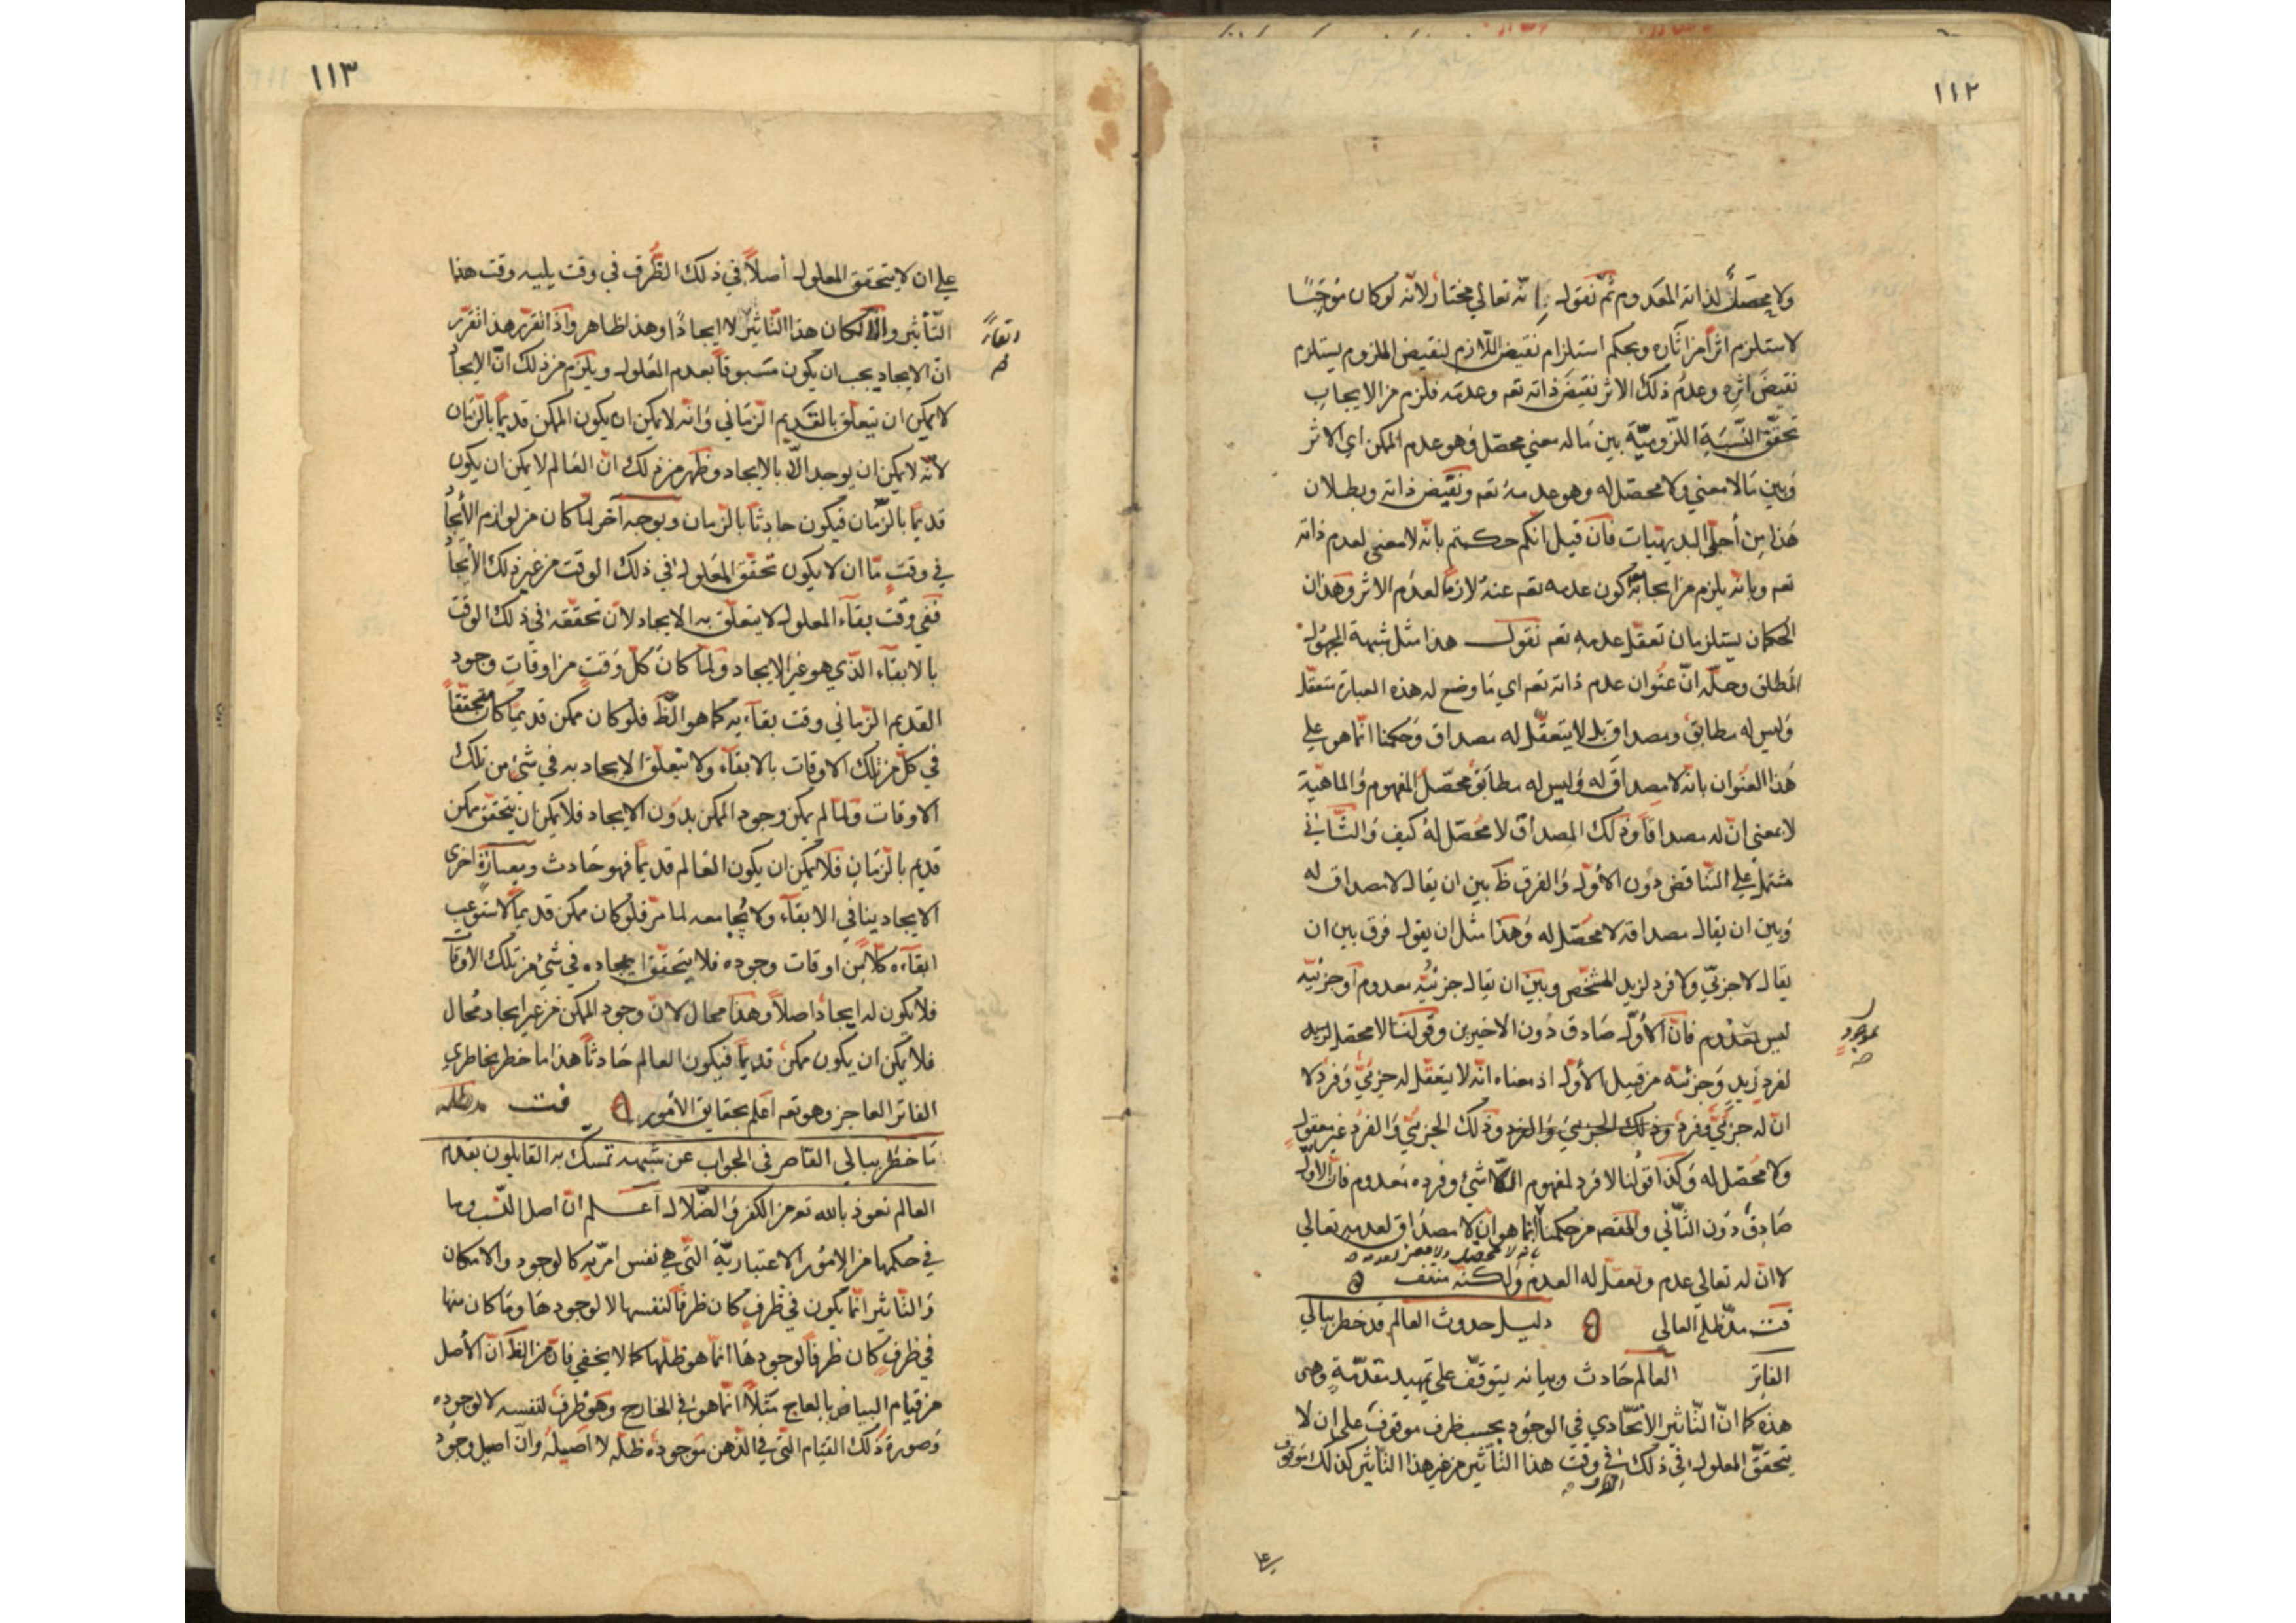 ١١٢
ولا محصّلَ لذاته المعدوم ثمّ نقول انّه تعالي مختار لانّه لو كان مُوجَبًا
لاستلزم اثراً من اثاره وبحكم استلزام نقيض اللّازم لنقيض الملزوم يستلزم
نقيضُ اثره وعدمُ ذلك الاثر نقيضَ ذاته تعه وعدمَه فلزم من الايجاب
تحقّق النّسبة اللزوميّة بين ما له معني محصّل وهو عدم الممكن اي الاثر
وبين مالا معني ولا محصّل له وهو عدمه تعه ونقيض ذاته وبطلان
هذا من أجلي البديهيّات فان قيل انّكم حكمتم بانّه لا معنى لعدم ذاته
تعه وبانّه يلزم من ايجابه كون عدمه تعه عنه لازمًا لعدم الاثر وهذان
الحكمان يستلزمان تعقّل عدمه تعه نقول هذا مثل شبهة المجهول
المطلق وحلّه انّ عنوان عدم ذاته تعه اي ما وضع له هذه العبارة متعقّل
وليس له مطابق ومصداق بل لا يتعقّل له مصداق وحكمنا انّما هو علي
هذا العنوان بانّه لا مصداق له وليس له مطابق محصّل المفهوم والماهيّة
لا بمعنى انّ له مصداقًا وذلك المصداق لا محصّل له كيف والثّاني
مشتمل علي التّناقض دون الاوّل والفرق ظ بين ان يقال لا مصداق له
وبين ان يقال مصداقه لا محصّل له وهذا مثل ان يقول فرق بين ان
يقال لا جزئي ولا فرد لزيد المشخّص وبين ان يقال جزئيّه معدوم او جزئيّه
ليس بمعدوم فانّ الاوّل صادق دون الاخيرين وقولنا لا محصّل
بموجود صه
لفرد زيد وجزئيّه من قبيل الاوّل اذ معناه انّه لا يتعقّل له جزئيّ وفرد لا
انّ له جزئيّ وفرد وذلك الجزئيّ والفرد غير معقول
ولا محصّل له وكذا قولنا لا فرد لمفهوم اللّاشئ وفرده معدوم فانّ الاوّل
صادق دون الثّاني والمقصه من حكمنا انّما هو ان لا مصداق لعدمه تعالي
بانه لا محصل ولا معنى لعدمه صه
لا انّ له تعالي عدم وتعقّل له العدم ولكنّه منتف
فت مدّ ظلّه العالي دليل حدوث العالم قد خطر ببالي
الفاتر العالم حادث وبيانه يتوقّف على تمهيد مقدّمة وهى
هذه كما انّ التّأثير الاتّحادي في الوجود بحسب ظرف موقوف على ان لا
يتحقّق المعلول في ذلك في وقت هذا التّأثير من غير هذا التأثير كذلك موقوف
الظرف صه
١١٣
علي ان لا يتحقق المعلول أصلاً في ذلك الظرف في وقت يليه وقت هذا
التّأثير والّا لكان هذا التّأثير لا ايجادًا وهذا ظاهر واذا تقرّر هذا تقرّر
ابقاءً صه
انّ الايجاد يجب ان يكون مسبوقاً بعدم المعلول ويلزم من ذلك انّ الايجاد
لا يمكن ان يتعلّق بالقديم الزّماني وانّه لا يمكن ان يكون الممكن قديمًا بالزّمان
لانّه لا يمكن ان يوجد الّا بالايجاد وظهر من ذلك انّ العالم لا يمكن ان يكون
قديمًا بالزّمان فيكون حادثًا بالزّمان وبوجه آخر لمّا كان من لوازم الايجاد
في وقت مّا ان لا يكون تحقّق المعلول في ذلك الوقت من غير ذلك الايجاد
ففي وقت بقاء المعلول لا يتعلّق به الايجاد لانّ تحقّقه في ذلك الوقت
بالابقاء الّذي هو غير الايجاد ولمّا كان كلّ وقت من اوقات وجود
القديم الزّماني وقت بقائه كما هو الظّ فلو كان ممكن قديمًا كان متحقّقًا
في كلّ من تلك الاوقات بالابقاء ولا يتعلّق الايجاد به في شئ من تلك
الاوقات ولمّا لم يمكن وجود الممكن بدون الايجاد فلا يمكن ان يتحقّق ممكن
قديم بالزّمان فلا يمكن ان يكون العالم قديمًا فهو حادث وبعبارة اخرى
الايجاد ينافي الابقاء ولا يجامعه لما مرّ فلو كان ممكن قديمًا لاستوعب
ابقاءه كلّا من اوقات وجوده فلا يتحقّق ايجاده في شئ من تلك الاوقات
فلا يكون له ايجاد اصلاً وهذا محال لانّ وجود الممكن من غير ايجاد محال
فلا يمكن ان يكون ممكن قديمًا فيكون العالم حادثًا هذا ما خطر بخاطري
الفاتر العاجز وهو تعه اعلم بحقايق الأمور فت مد ظله
ما خطر ببالي القاصر في الجواب عن شبهة تمسك به القايلون بقدم
العالم نعوذ بالله تعه من الكفر والضّلال اعلم انّ اصل النّسب وما
في حكمها من الامور الاعتباريّة الّتي هي نفس امريّه كالوجود والامكان
والتّاثير انّما يكون في ظرفٍ كان ظرفًا لنفسها لا لوجودها وما كان منها
في ظرف كان ظرفًا لوجودها انّما هو ظلّها كما لا يخفي فانّ من الظ انّ الأصل
من قيام البياض بالعاج مثلاً انّما هو في الخارج وهو ظرف لنفسه لا لوجوده
وصورة ذلك القيام الّتي في الذّهن موجوده ظلّه لا اصيله وانّ اصيل وجود